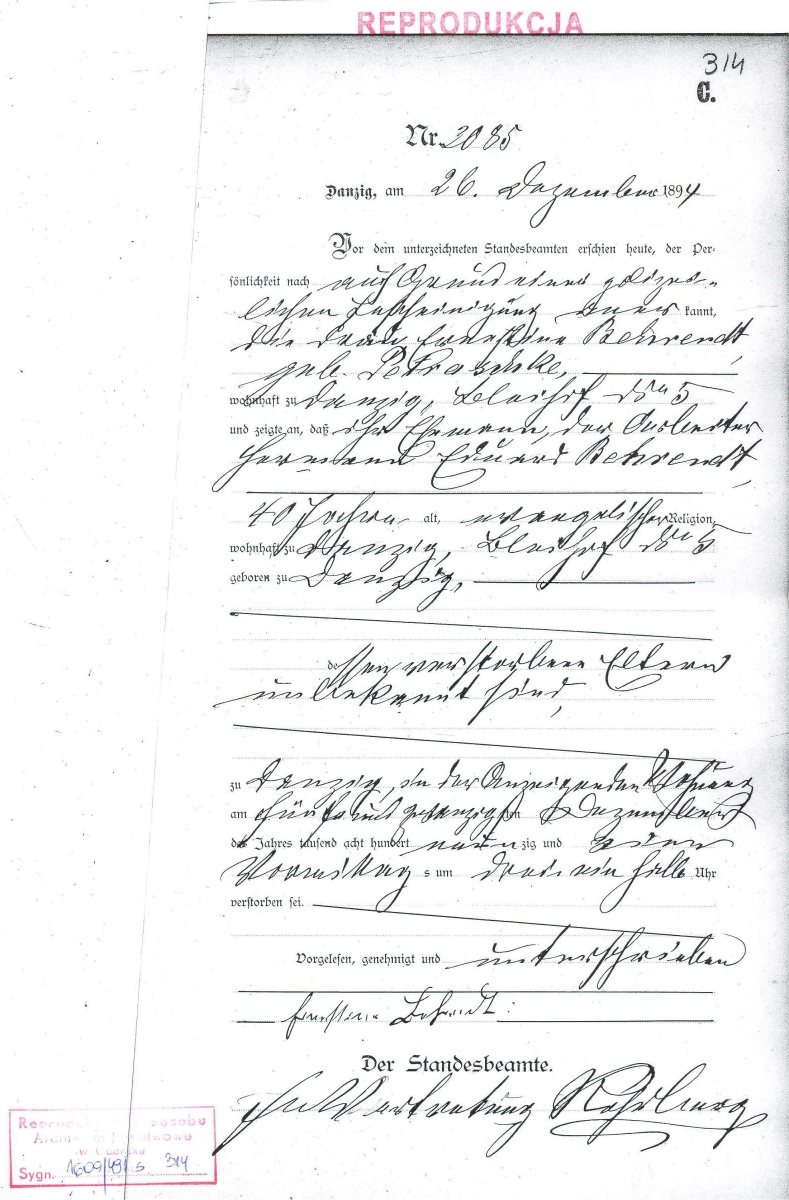 REPRODUKCJA
314
C.
Nr. 2085
Danzig, am 26. Dezember 1894
Vor dem unterzeichneten Standesbeamten erschien heute, der Per-
sönlichkeit nach auf Grund einer polizei-
lichen Bescheinigung aner kannt,
die Frau Ernestine Behrendt,
geb. Petraschke,
wohnhaft zu Danzig, Bleihof No 5
und zeigte an, daß ihr Ehemann, der Arbeiter
Hermann Eduard Behrendt,
40 Jahre alt, evangelischer Religion,
wohnhaft zu Danzig, Bleihof No 5
geboren zu Danzig,
dessen verstorbene Eltern
unbekannt sind,
zu Danzig, in der Anzeigenden Wohnung
am fünf und zwanzigsten Dezember
des Jahres tausend acht hundert neunzig und vier
Vormittag s um drei ein halb Uhr
verstorben sei.
Vorgelesen, genehmigt und unterschrieben
Ernstine Behrendt.
Der Standesbeamte.
In Vertretung
w Gdańsku
Sygn. 1609/491 s 314